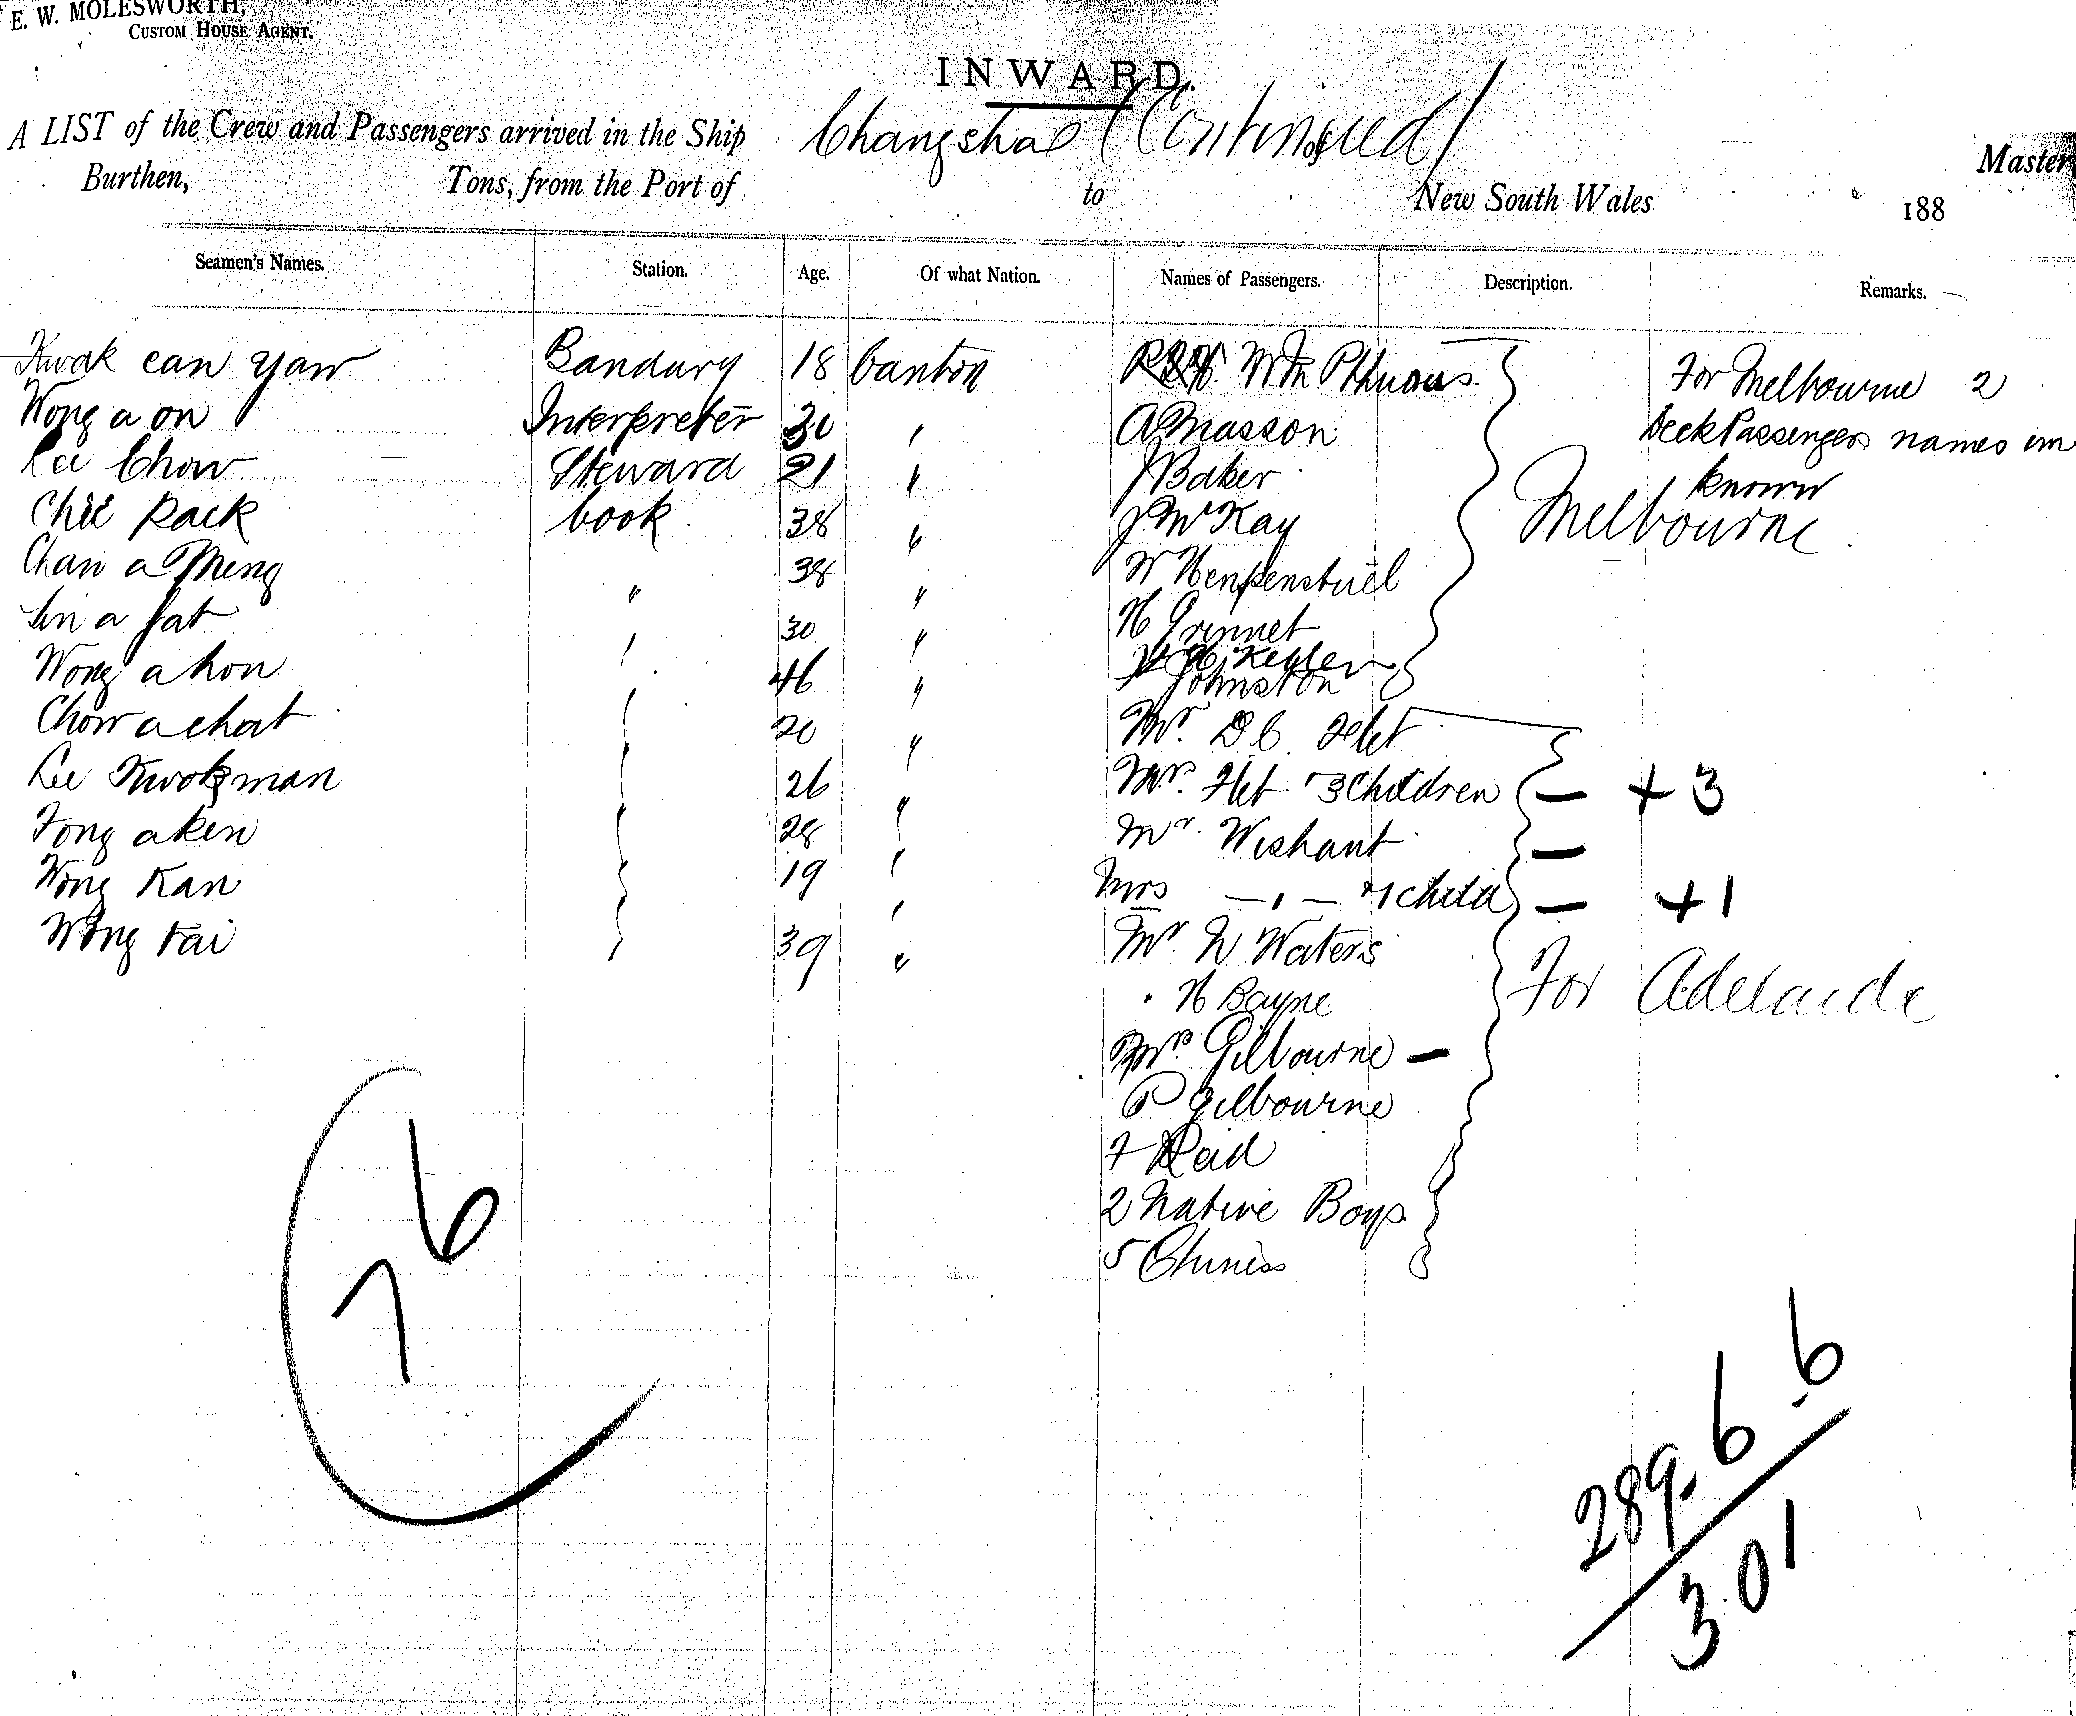 E. W. MOLESWORTH,
CUSTOM HOUSE AGENT.
INWARD.
A LIST of the Crew and Passengers arrived in the Ship Changsha (Continued)
of Master
Burthen, Tons, from the Port of to New South Wales 188
Seamen's Names. Station. Age. Of what Nation. Names of Passengers. Description. Remarks.
Kwok can yaw Bandury 18 Canton Wm For Melbourne 2
Wong a on Interpreter 30 " A Masson Deck Passengers names un
Lee Chow Steward 21 " J Baker known
Chee Rack Cook 38 " J McKay Melbourne
Chan a Meng " 38 " W Henpenstuel
Lin a fat " 30 " H Grinnet
Keyler
Wong a hon " 46 " Johnston
Chow a chat " 20 " Mr. D C Flet
Lee Kwok man " 26 " Mrs. Flet 3 Children — + 3
Fong a ken " 28 " Mr. Wishant —
Wong Kan " 19 " Mrs — " — 1 child — + 1
Wong Tai " 39 " Mr W Waters
" H Bayne For Adelaide
Mrs. Gilbourne —
P Gilbourne
F Reid
2 Native Boys
5 Chiness
76
289. 6. 6
301